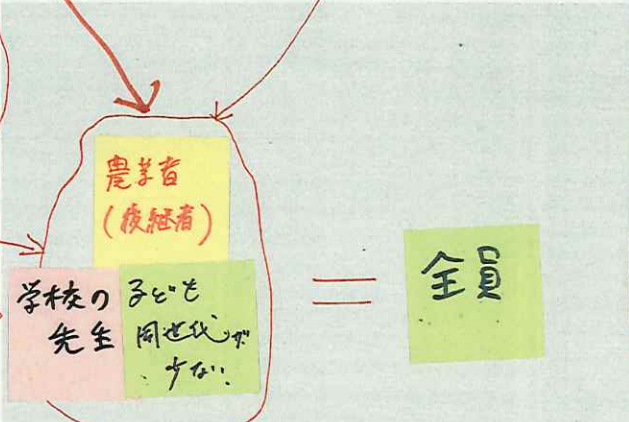 農業者
(後継者)
学校の
先生
子ども
同世代が
少ない
=
全員